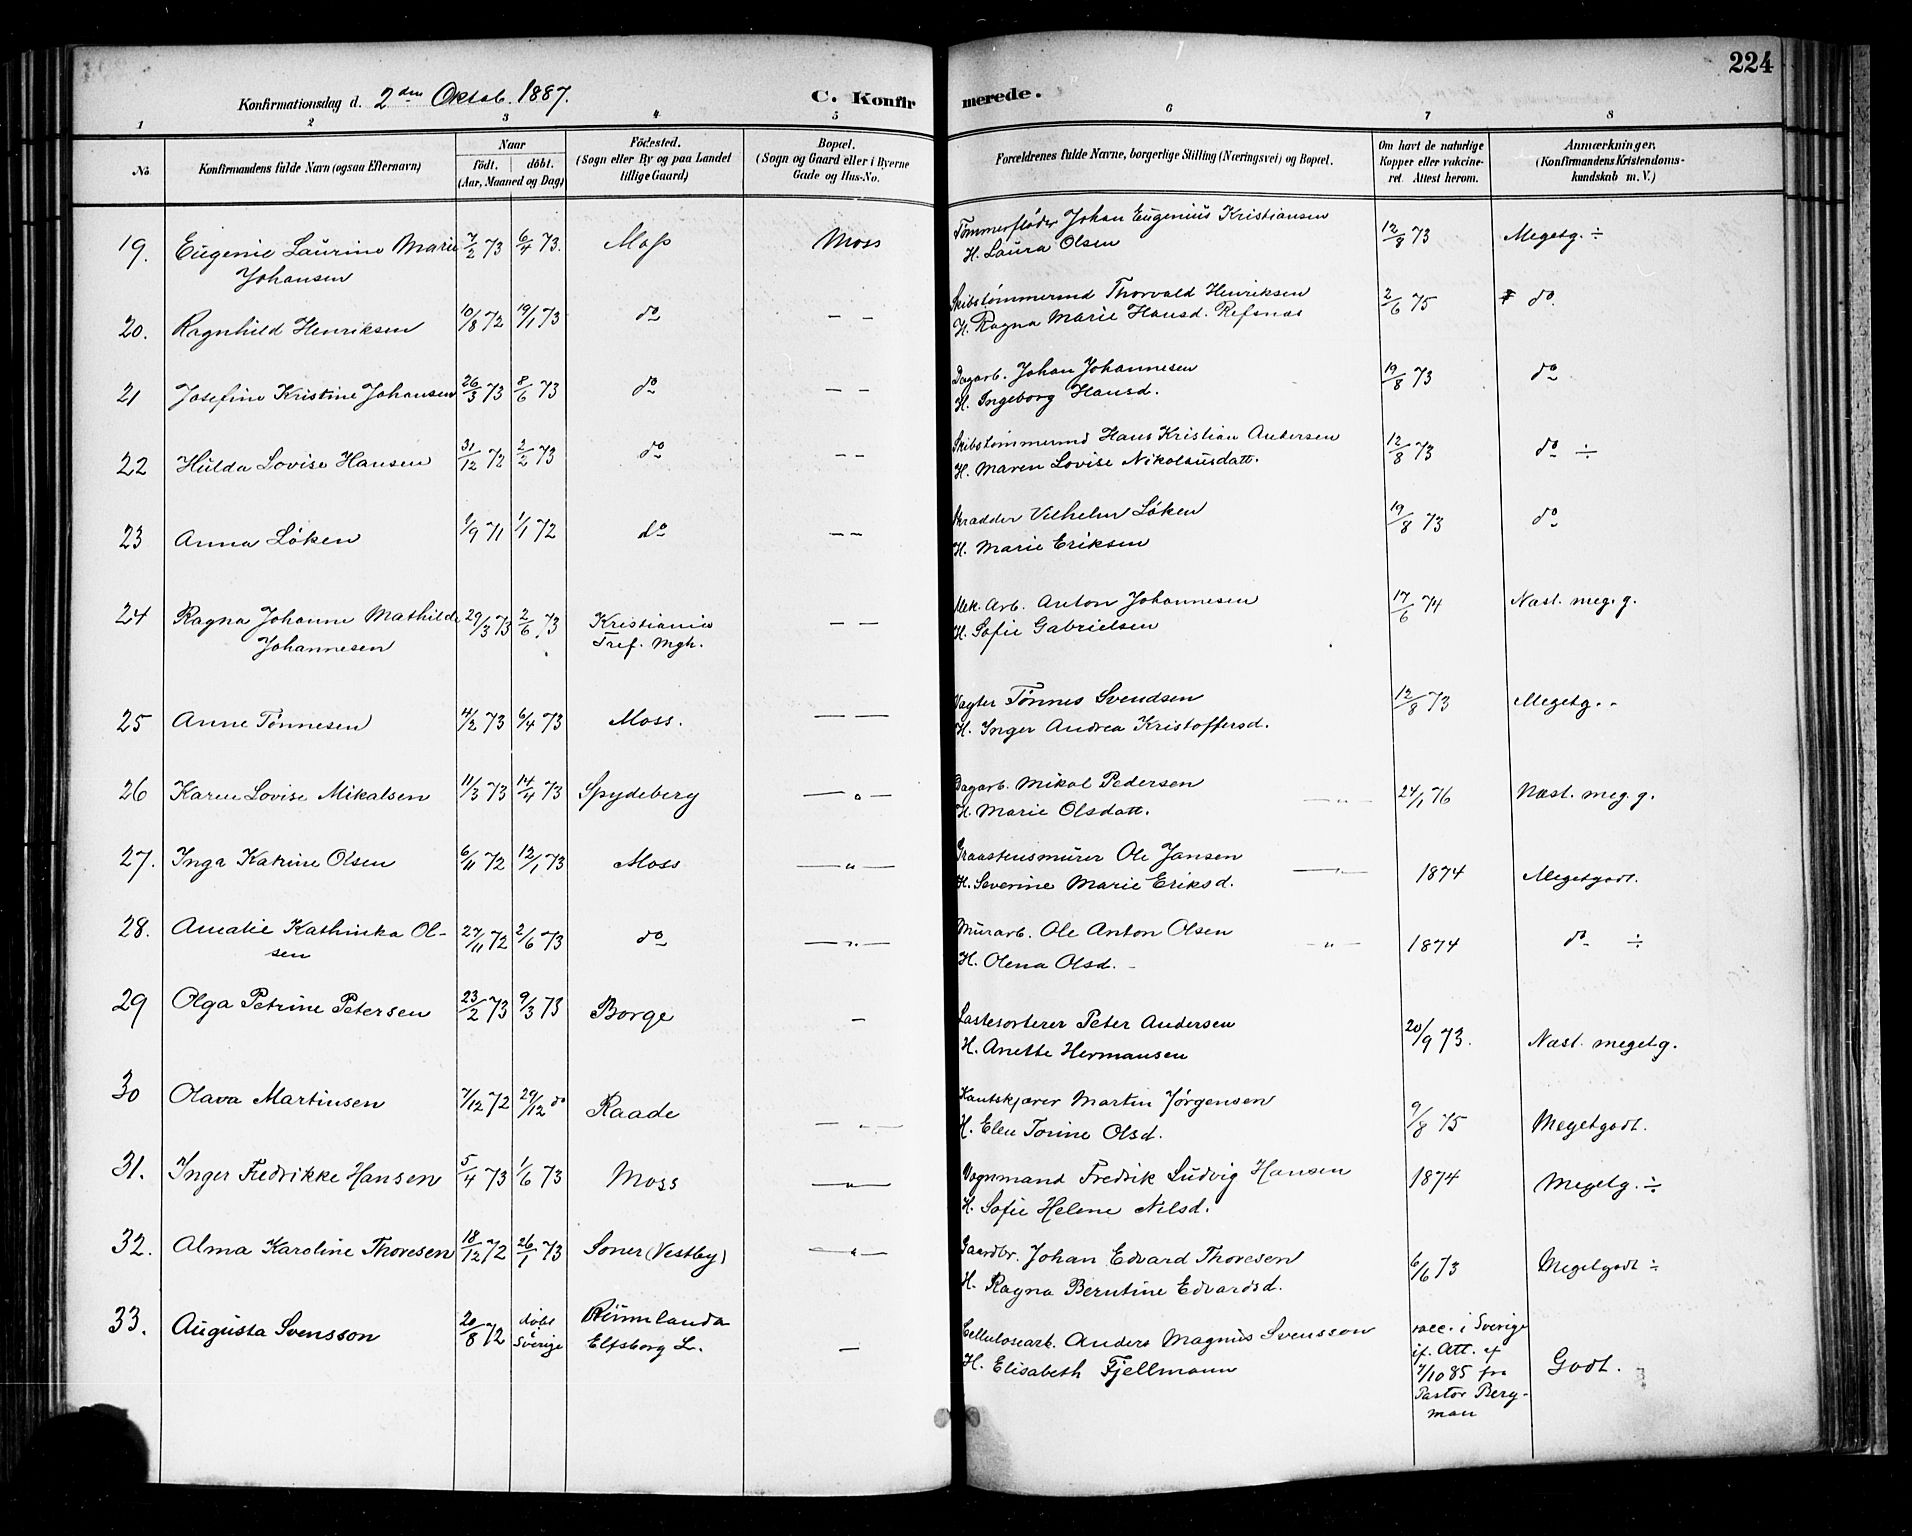 224
Konfirmationsdag d. 2den Oktob. 1887. C. Konfirmerede.
1 2 3 4 5 6 7 8
No. Konfirmandens fulde Navn (ogsaa Efternavn) Naar født. døbt. (Aar, Maaned og Dag) Födested. (Sogn eller By og paa Landet tillige Gaard) Bopæl. (Sogn og Gaard eller i Byerne Gade og Hus-No. Forældrenes fulde Navne, borgerlige Stilling (Næringsvei) og Bopæl. Om havt de naturlige Kopper eller vakcineret. Attest herom. Anmærkninger. (Konfirmandens Kristendomskundskab m. V.)
19. Eugenie Laurine Marie 7/2 73 6/4 73. Moss Moss Tømmerfløder Johan Eugenius Kristiansen 12/8 73 Megetg. ÷
Johansen H. Laura Olsen
20. Ragnhild Henriksen 10/8 72 19/1 73 do — — Skibstømmermd Thorvald Henriksen 2/6 75 do
H. Ragna Marie Hansd. Refsnes
21 Josefine Kristine Johansen 26/3 73 8/6 73 do — — Dagarb. Johan Johannesen 19/8 73 do
H. Ingeborg Hansd.
22 Hulda Lovise Hansen 31/12 72 2/2 73 do — — Skibstømmermd Hans Kristian Andersen 12/8 73 do ÷
H. Maren Lovise Nikolausdatt.
23 Anna Løken 1/9 71 1/1 72 do — — Skrædder Vilhelm Løken 19/8 73 do
H. Marie Eriksen
24 Ragna Johanne Mathilde 29/3 73 2/6 73 Kristiania — — Mek. Arb. Anton Johannesen 17/6 74 Næst. meg. g.
Johannesen Tref. Mgh. H. Sofie Gabrielsen
25 Anne Tønnesen 4/2 73 6/4 73 Moss. — — Vagter Tønnes Svendsen 12/8 73 Megetg. -
H. Inger Andrea Kristoffersd.
26 Karen Lovise Mikalsen 11/3 73 14/4 73 Spydeberg — " — Dagarb. Mikal Pedersen — " — 24/1 76 Næst. meg. g.
H. Marie Olsdatt.
27. Inga Katrine Olsen 6/11 72 12/1 73 Moss — " — Graastensmurer Ole Jansen — " — 1874 Megetgodt.
H. Severine Marie Eriksd.
28. Amalie Kathinka Ol- 27/11 72 2/6 73 do — " — Murarb. Ole Anton Olsen — " — 1874 do ÷
sen H. Olena Olsd. -
29 Olga Petrine Petersen 23/2 73 9/3 73 Borge — Lastesorterer Peter Andersen 20/9 73. Næst. megetg.
H. Anette Hermansen
30 Olava Martinsen 7/12 72 29/12 do Raade — " — Kantskjærer Martin Jørgensen 9/8 75 Megetgodt.
H. Elen Torine Olsd.
31. Inger Fredrikke Hansen 5/4 73 1/6 73 Moss — " — Vognmand Fredrik Ludvig Hansen 1874 Megetg. ÷
H. Sofie Helene Nilsd.
32. Alma Karoline Thoresen 18/12 72 26/1 73 Soner (Vestby) — " — Gaardbr. Johan Edvard Thoresen 6/6 73 Megetgodt ÷
H. Ragna Berntine Edvardsd.
33. Augusta Svensson 20/8 72 døbt Sverige Elfsborg L. — Cellulosearb. Anders Magnus Svensson vacc. i Sverige Godt.
H. Elisabeth Fjellmann if. Att. af
7/10 85 fra
Pastor Berg-
man